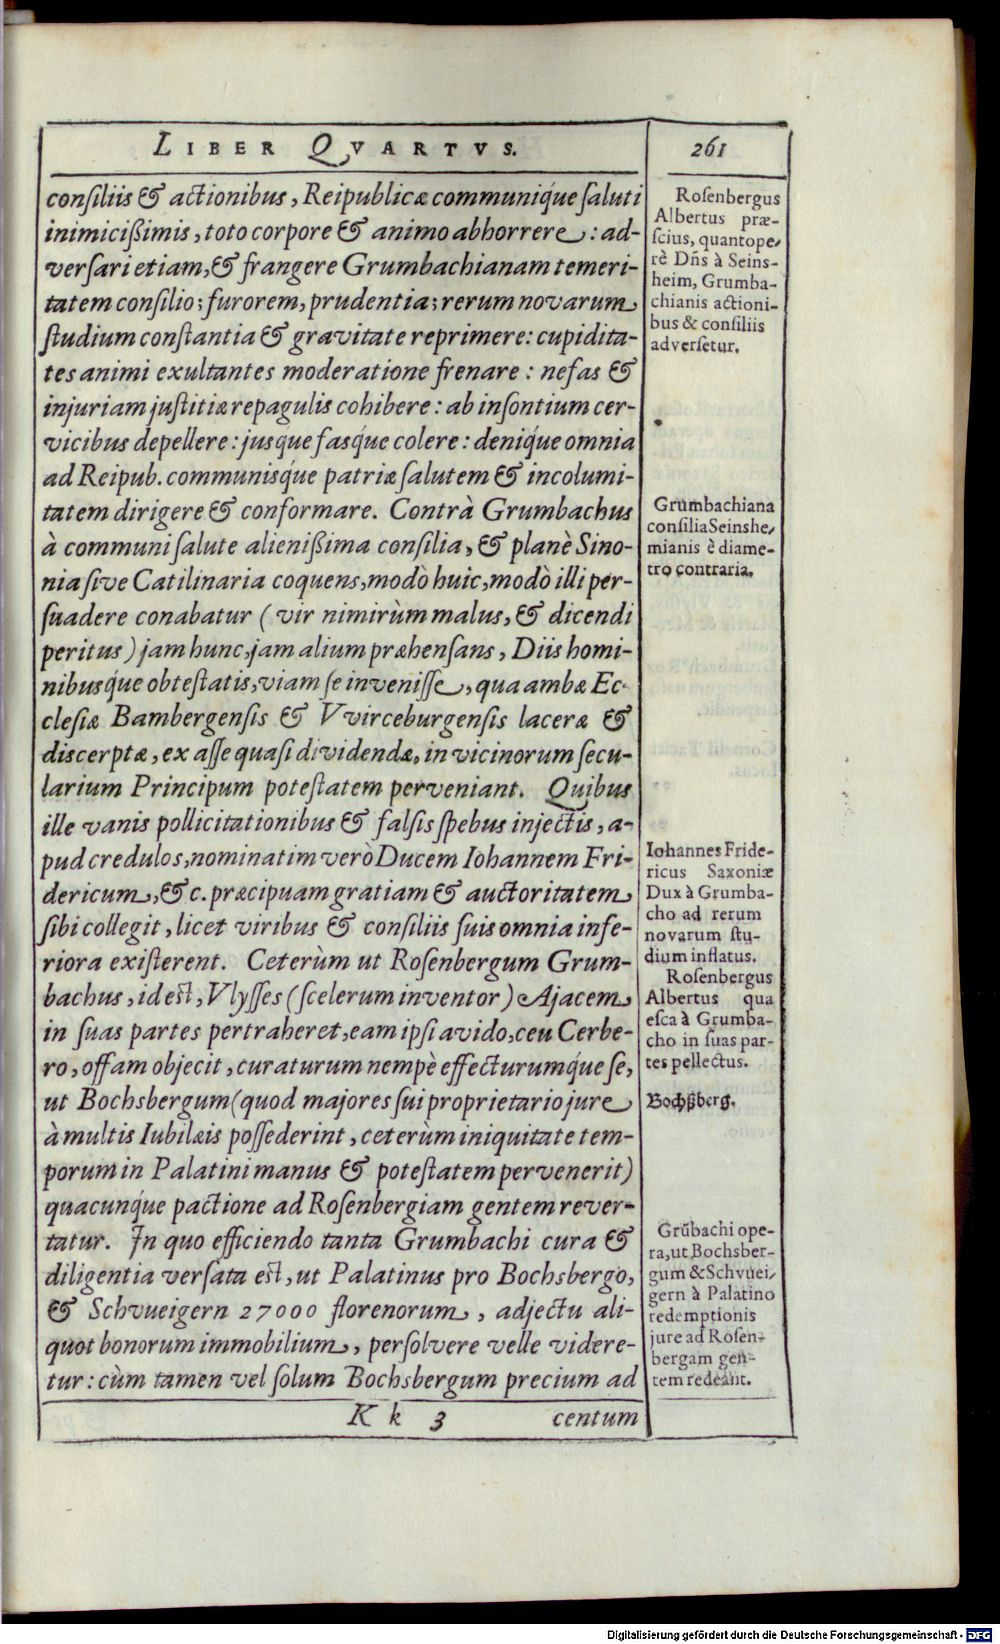 LIBER QVARTVS.
261
consiliis & actionibus, Reipublicæ communiq́ue saluti
inimicißimis, toto corpore & animo abhorrere: ad-
versari etiam, & frangere Grumbachianam temeri-
tatem consilio; furorem, prudentia; rerum novarum
studium constantia & gravitate reprimere: cupidita-
tes animi exultantes moderatione frenare: nefas &
injuriam justitiæ repagulis cohibere: ab insontium cer-
vicibus depellere: jusque fasq́ue colere: deniq́ue omnia
ad Reipub. communisq́ue patriæ salutem & incolumi-
tatem dirigere & conformare. Contrà Grumbachus
à communi salute alienißima consilia, & planè Sino-
nia sive Catilinaria coquens, modò huic, modò illi per-
suadere conabatur (vir nimirùm malus, & dicendi
peritus) jam hunc, jam alium præhensans, Diis homi-
nibusq́ue obtestatis, viam se invenisse, qua ambæ Ec-
clesiæ Bambergensis & Vvirceburgensis laceræ &
discerptæ, ex asse quasi dividendæ, in vicinorum secu-
larium Principum potestatem perveniant. Quibus
ille vanis pollicitationibus & falsis spebus injectis, a-
pud credulos, nominatim verò Ducem Iohannem Fri-
dericum, & c. præcipuam gratiam & auctoritatem
sibi collegit, licet viribus & consiliis suis omnia infe-
riora existerent. Ceterùm ut Rosenbergum Grum-
bachus, id est, Vlysses (scelerum inventor) Ajacem
in suas partes pertraheret, eam ipsi avido, ceu Cerbe-
ro, offam objecit, curaturum nempè effecturumq́ue se,
ut Bochsbergum (quod majores sui proprietario jure
à multis Iubilæis possederint, ceterùm iniquitate tem-
porum in Palatini manus & potestatem pervenerit)
quacunq́ue pactione ad Rosenbergiam gentem rever-
tatur. In quo efficiendo tanta Grumbachi cura &
diligentia versata est, ut Palatinus pro Bochsbergo,
& Schvueigern 27000 florenorum, adjectu ali-
quot bonorum immobilium, persolvere velle videre-
tur: cùm tamen vel solum Bochsbergum precium ad
Kk 3
centum
Rosenbergus
Albertus præ-
scius, quantope-
rè Dñs à Seins-
heim, Grumba-
chianis actioni-
bus & consiliis
adversetur.
Grumbachiana
consilia Seinshe-
mianis è diame-
tro contraria.
Iohannes Fride-
ricus Saxoniæ
Dux à Grumba-
cho ad rerum
novarum stu-
dium inflatus.
Rosenbergus
Albertus qua
esca à Grumba-
cho in suas par-
tes pellectus.
Bochßberg.
Grũbachi ope-
ra, ut Bochsber-
gum & Schvuei-
gern à Palatino
redemptionis
jure ad Rosen-
bergam gen-
tem redeant.
Digitalisierung gefördert durch die Deutsche Forschungsgemeinschaft - DFG